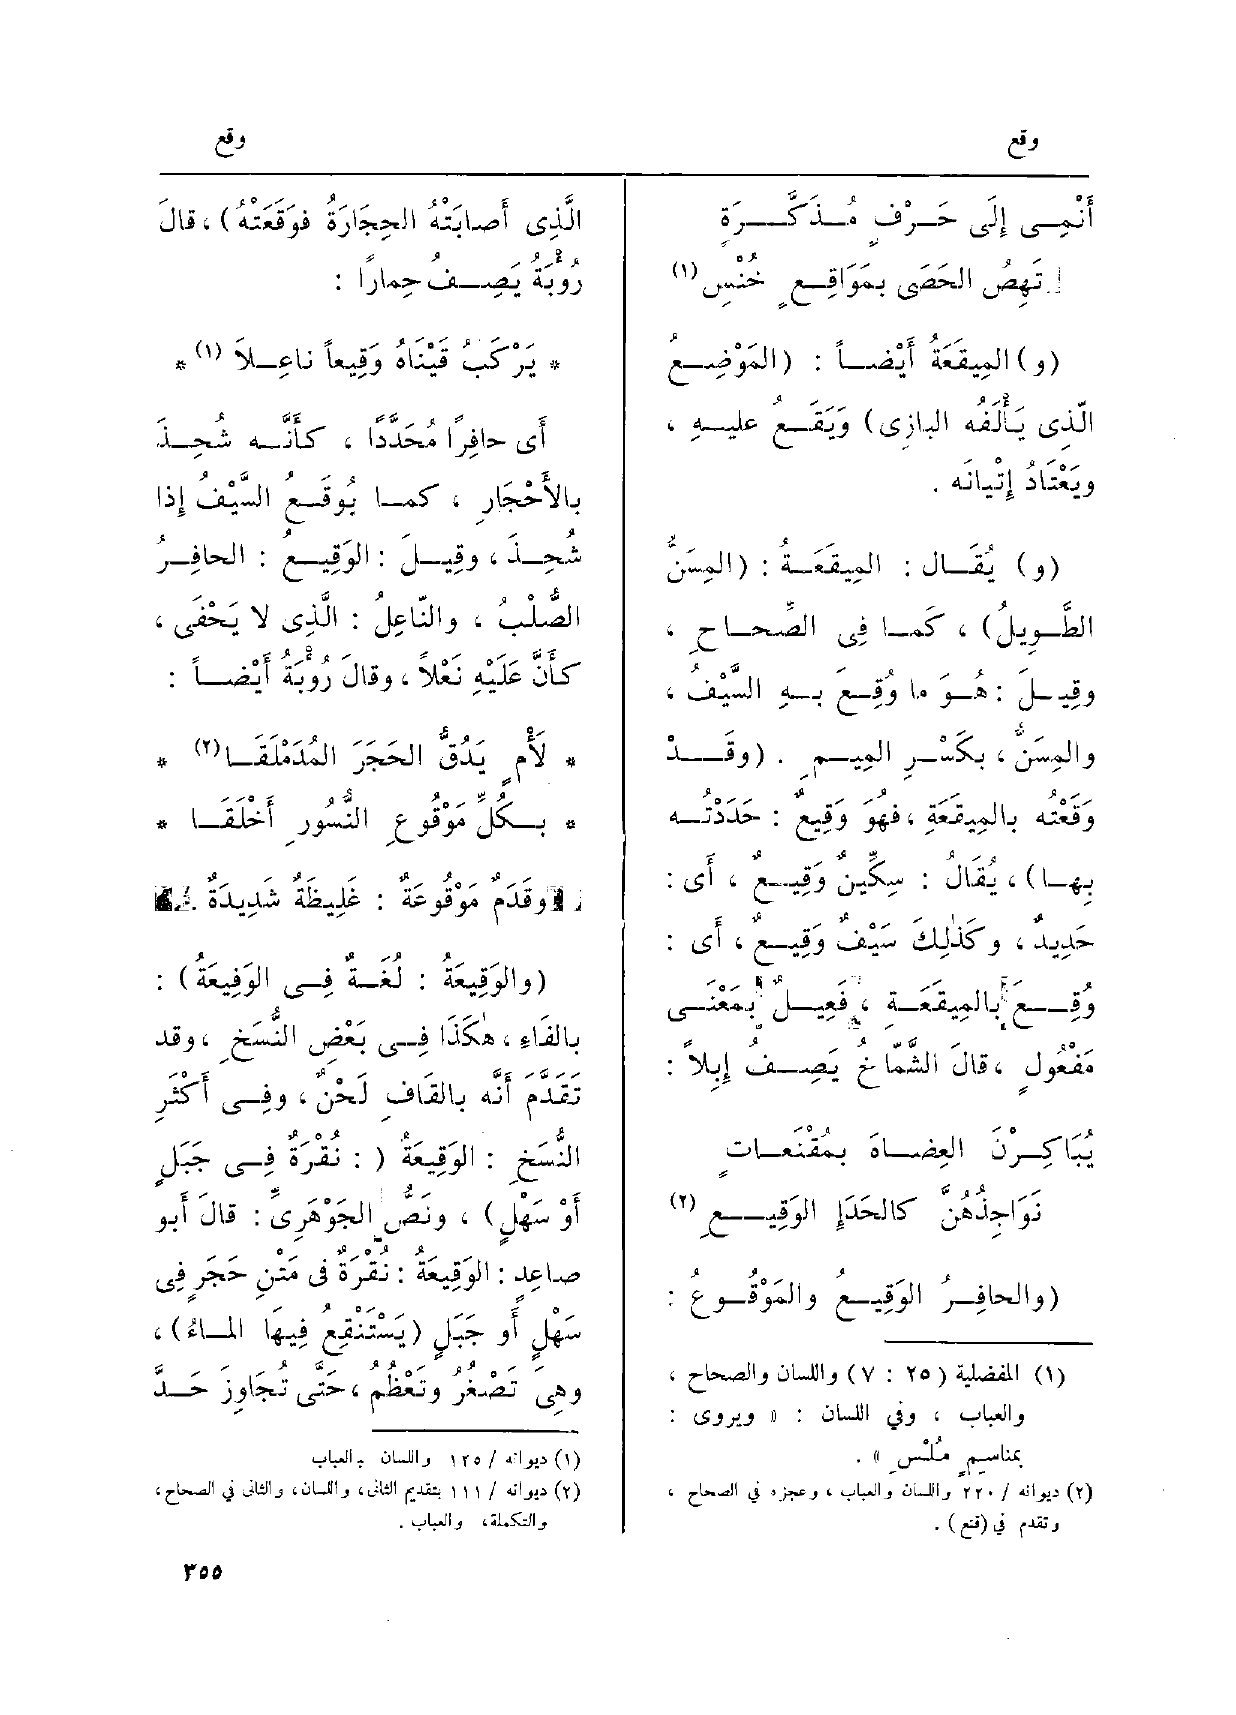 وقع
وقع
أَنْمِى إِلَى حَرْفٍ مُذَكَّرَةٍ
تَهِصُ الحَصَى بمَوَاقِعٍ خُنْسِ (١)
(و) المِيقَعَةُ أَيْضاً : (المَوْضِعُ
الَّذِى يَأْلَفُه البازِى) وَيَقَعُ عليهِ ،
ويَعْتَادُ إِتْيانَه .
(و) يُقَال : المِيقَعَةُ : (المِسَنُّ
الطَّوِيلُ) ، كَمَا فِى الصِّحاحِ ،
وقِيلَ : هُوَ ما وُقِعَ بِهِ السَّيْفُ ،
والمِسَنُّ ، بكَسْرِ المِيمِ . (وقَدْ
وَقَعْتُه بالمِيقَعَةِ ، فهُوَ وَقِيعٌ : حَدَدْتُه
بِها) ، يُقَالُ : سِكِّينٌ وَقِيعٌ ، أَى :
حَدِيدٌ ، وكَذلِكَ سَيْفٌ وَقِيعٌ ، أَى :
وُقِعَ بالمِيقَعَةِ ، فَعِيلٌ بمَعْنَى
مَفْعُولٍ ، قالَ الشَّمّاخُ يَصِفُ إِبِلاً :
يُبَاكِرْنَ العِضَاهَ بمُقْنَعَاتٍ
نَوَاجِذُهُنَّ كالحَدَإِ الوَقِيعِ (٢)
(والحافِرُ الوَقِيعُ والمَوْقُوعُ :
(١) المفضلية (٢٥ : ٧) واللسان والصحاح ،
والعباب ، وفي اللسان : « ويروى :
بمناسِمٍ مُلْسِ » .
(٢) ديوانه / ٢٢٠ واللسان والعباب ، وعجزه في الصحاح ،
وتقدم في (قنع) .
الَّذِى أَصابَتْهُ الحِجَارَةُ فوَقَعَتْهُ) ، قالَ
رُوْبَةُ يَصِفُ حِماراً :
* يَرْكَبُ قَيْنَاهُ وَقِيعاً ناعِلاَ (١) *
أَى حافِرًا مُحَدَّدًا ، كَأَنَّه شُحِذَ
بالأَحْجَارِ ، كما يُوقَعُ السَّيْفُ إِذا
شُحِذَ ، وقِيلَ : الوَقِيعُ : الحافِرُ
الصُّلْبُ ، والنّاعِلُ : الَّذِى لا يَحْفَى ،
كَأَنَّ عَلَيْهِ نَعْلاً ، وقالَ رُوْبَةُ أَيْضاً :
* لأْمٍ يَدُقُّ الحَجَرَ المُدَمْلَقَا (٢) *
* بكُلِّ مَوْقُوعِ النُّسُورِ أَخْلَقَا *
وقَدَمٌ مَوْقُوعَةٌ : غَلِيظَةٌ شَدِيدَةٌ .
(والوَقِيعَةُ : لُغَةٌ فِى الوَفِيعَةُ) :
بالفَاءِ ، هكَذَا فِى بَعْضِ النُّسَخِ ، وقد
تَقَدَّمَ أَنَّه بالقَافِ لَحْنٌ ، وفِى أَكْثَرِ
النُّسَخِ : الوَقِيعَةُ ( : نُقْرَةٌ فِى جَبَلٍ
أَوْ سَهْلٍ) ، ونَصُّ الجَوْهَرِىِّ : قالَ أَبو
صاعِدٍ : الوَقِيعَةُ : نُقْرَةٌ فى مَتْنِ حَجَرٍ فِى
سَهْلٍ أَو جَبَلٍ (يَسْتَنْقِعُ فِيها الماءُ) ،
وهِىَ تَصْغُرُ وتَعْظُم ، حَتَّى تُجَاوِزَ حَدَّ
(١) ديوانه / ١٢٥ واللسان والعباب
(٢) ديوانه / ١١١ بتقديم الثانى، واللسان، والثانى في الصحاح،
والتكملة، والعباب .
٣٥٥